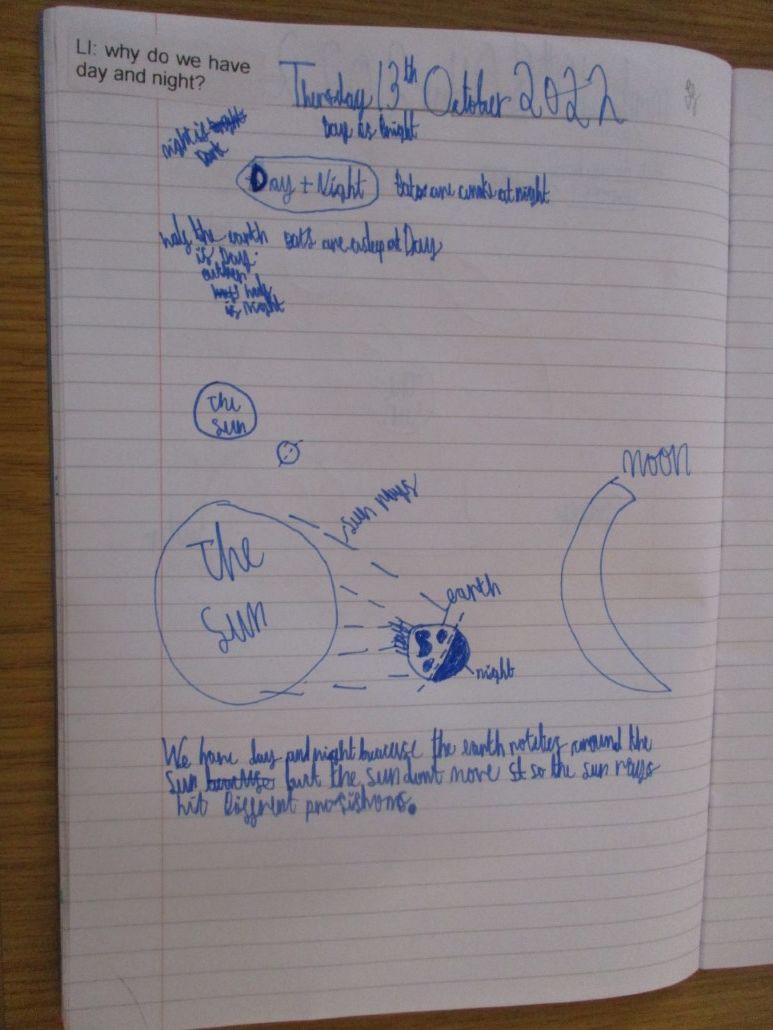 LI: why do we have
day and night?
Thursday 13th October 2022
Day is bright
night is
Dark
Day + Night
Bats are awake at night
half the earth
is Day.
outher
half
is Night
Bats are asleep at Day
The
Sun
Sun rays
moon
The
Sun
earth
night
We have day and night because the earth rotates around the
sun but the sun dont move so the sun rays
hit different